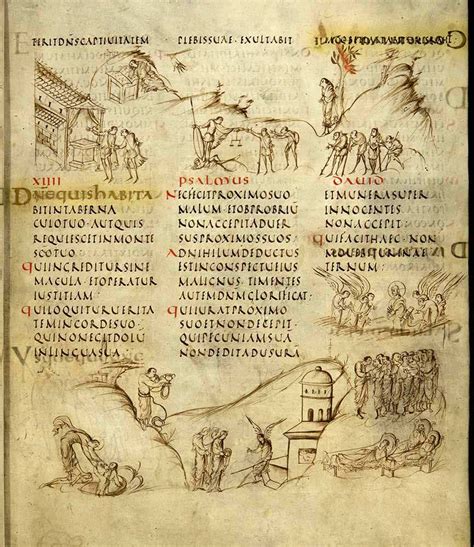 ETERITDNSCAPTIUITATEM
PLEBISSUAE·EXULTABIT
XIIII PSALMUS DAUID
DNEQUISHABITA
BITINTABERNA
CULOTUO·AUTQUIS
REQUIESCETINMONTE
SCOTUO
QUIINGREDITURSINE
MACULA·ETOPERATUR
IUSTITIAM·
QUILOQUITURUERITA
TEMINCORDESUO
QUINONEGITDOLU
INLINGUASUA
NECFECITPROXIMOSUO
MALUM·ETOBPROBRIU
NONACCEPITADUER
SUSPROXIMOSSUOS·
ADNIHILUMDEDUCTUS
ESTINCONSPECTUEIUS
MALIGNUS·TIMENTES
AUTEMDNMGLORIFICAT·
QUIIURATPROXIMO
SUOETNONDECEPIT
QUIPECUNIAMSUA
NONDEDITADUSURA
ETMUNERASUPER
INNOCENTES
NONACCEPIT·
QUIFACITHAEC·NON
MOUEBITURINAE
TERNUM·